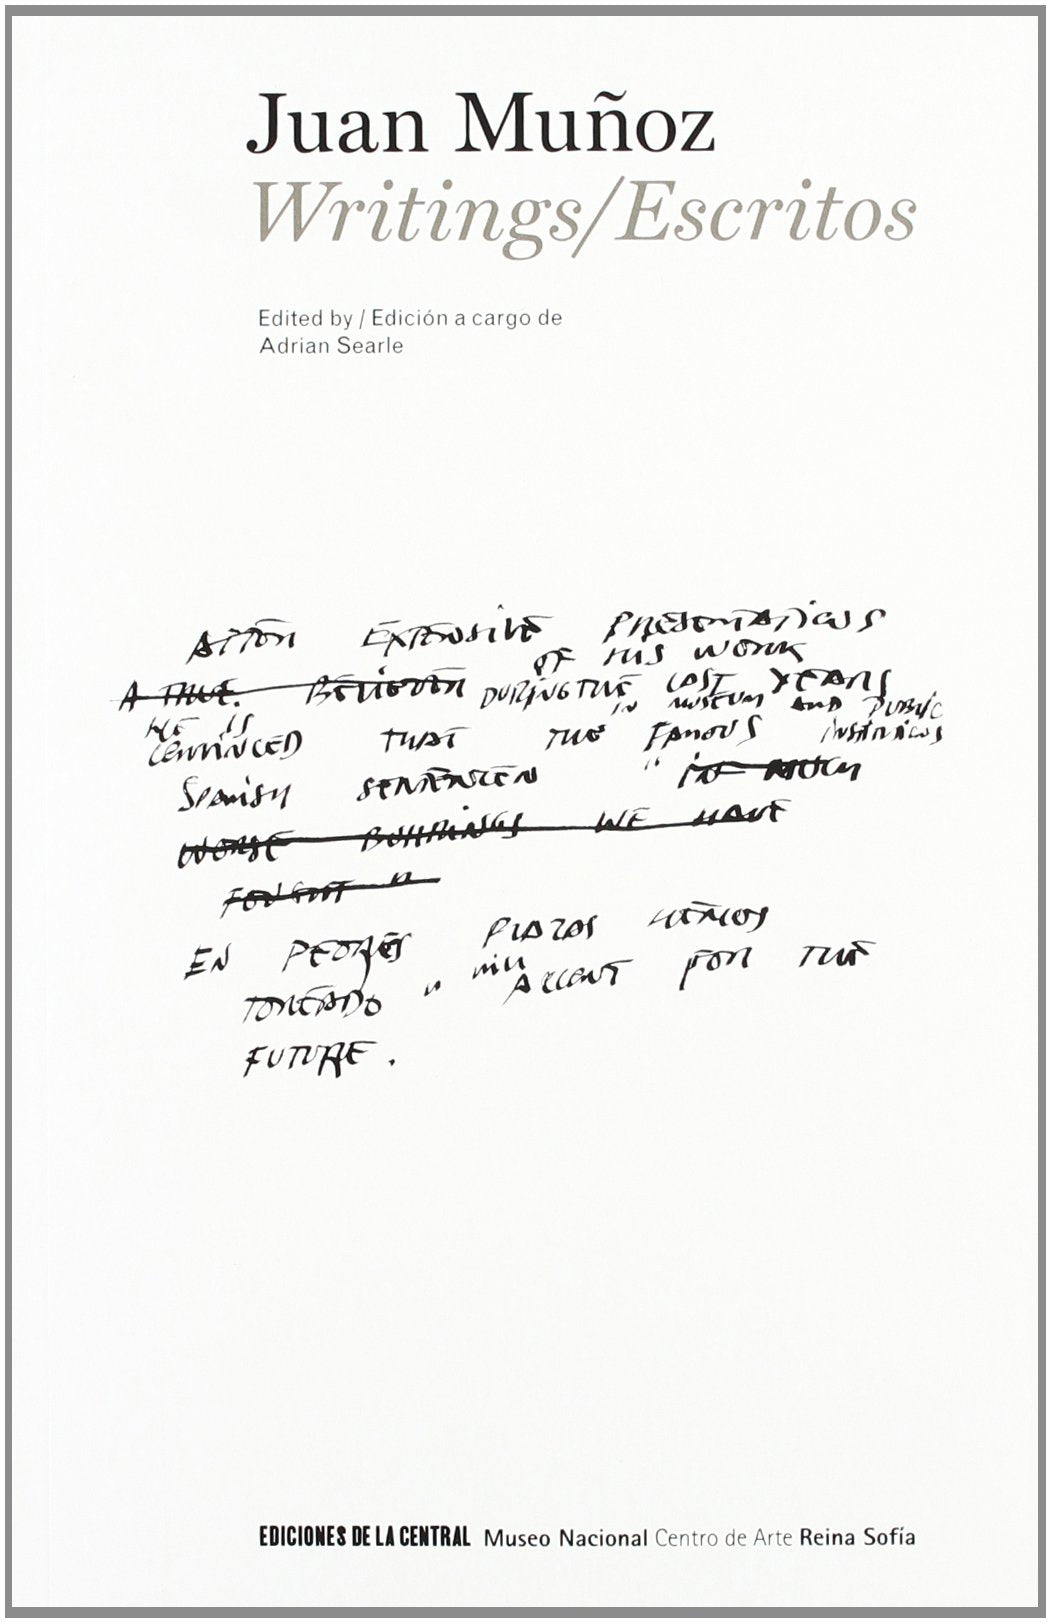 Juan Muñoz
Writings/Escritos
Edited by / Edición a cargo de
Adrian Searle
AFTER EXTENSIVE PRESENTATIONS
OF HIS WORK
A TRUE. BELIEVER DURING THE LAST YEARS
IN MUSEUM AND PUBLIC
HE IS
CONVINCED THAT THE FAMOUS INSTITUTIONS
SPANISH SENTENCE "IN MUCH
WORSE BULLRINGS WE HAVE
FOUGHT"
EN PEORES PLAZAS HEMOS
TOREADO" WILL ACCOUNT FOR THE
FUTURE.
EDICIONES DE LA CENTRAL Museo Nacional Centro de Arte Reina Sofía